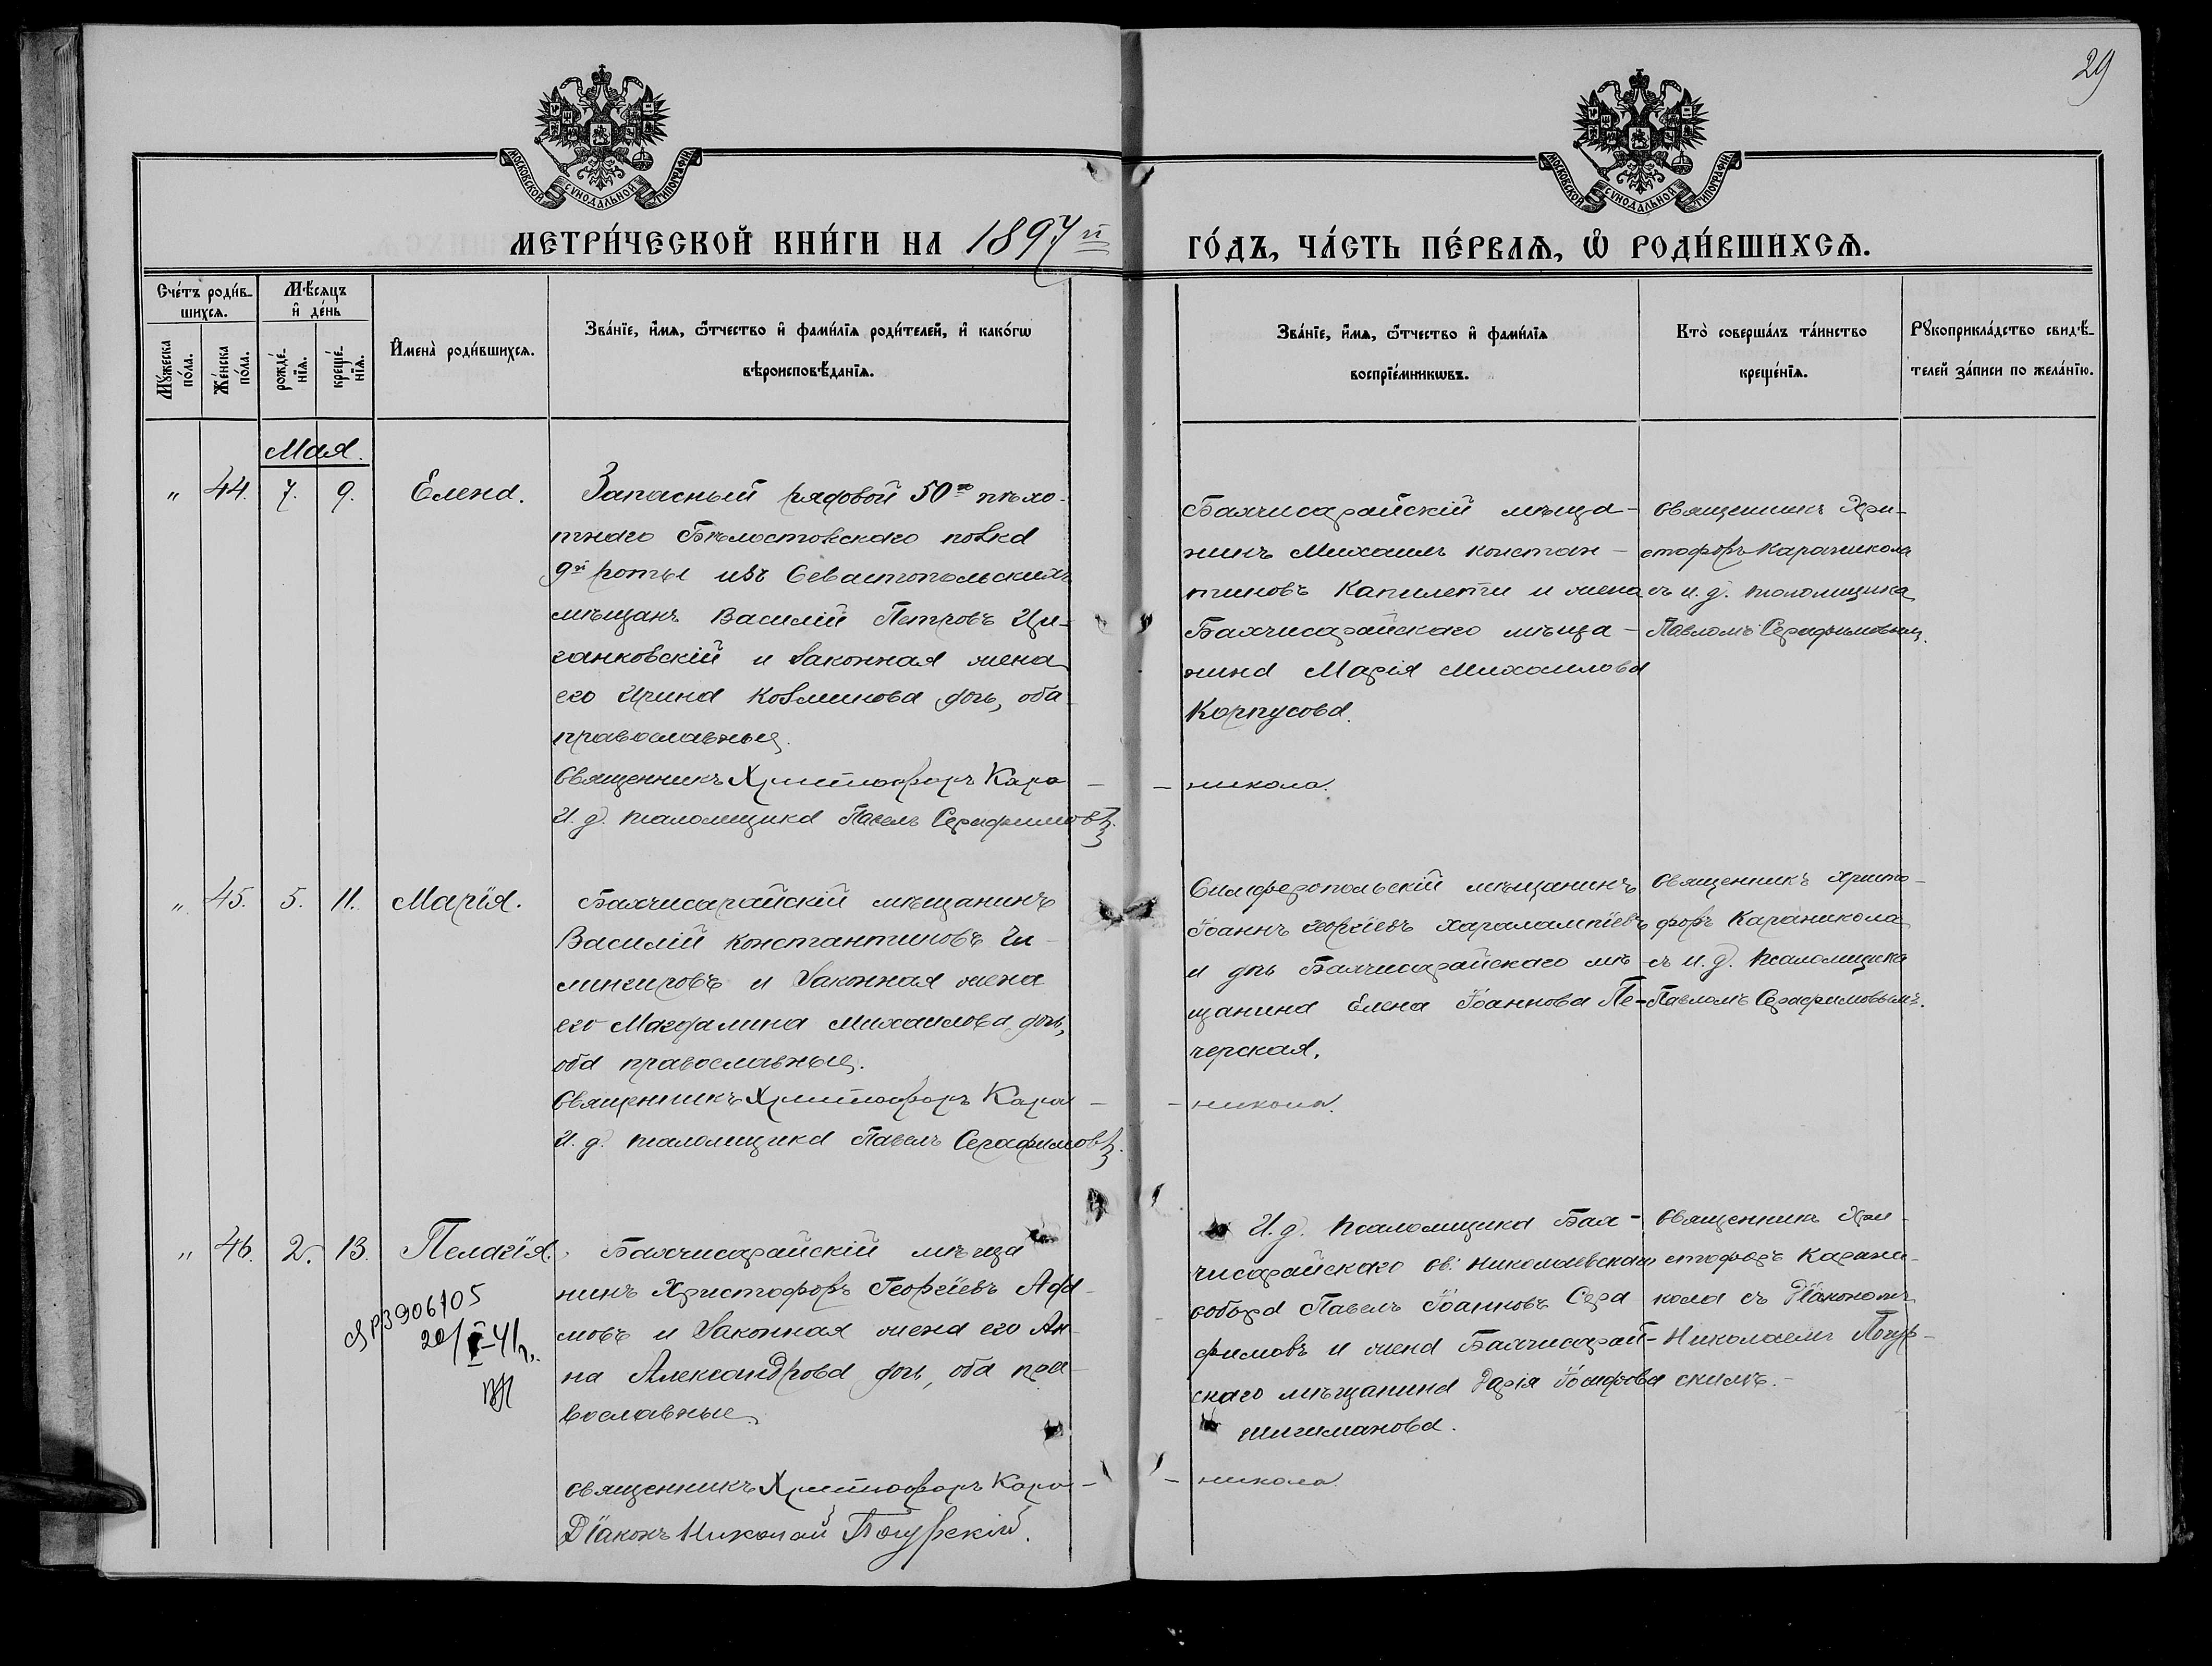 29
МОСКОВСКОЙ СУНОДАЛЬНОЙ ТИПОГРАФІИ
МОСКОВСКОЙ СУНОДАЛЬНОЙ ТИПОГРАФІИ
МЕТРИ́ЧЕСКОЙ КНИ́ГИ НА 1897й
ГО́ДЪ, ЧА́СТЬ ПЕ́РВАѦ, Ѡ҆ РОДИ́ВШИХСѦ.
Сче́тъ роди́в-
шихсѧ.
Мꙋ́жеска по́ла.
Же́нска по́ла.
Мѣ́сѧцъ
и҆ де́нь
рожде́-нїѧ.
креще́-нїѧ.
И҆мена̀ роди́вшихсѧ.
Зва́нїе, и҆́мѧ, ѻ҆́тчество и҆ фами́лїѧ роди́телей, и҆ како́гѡ
вѣроисповѣ́данїѧ.
Зва́нїе, и҆́мѧ, ѻ҆́тчество и҆ фами́лїѧ
воспрїе́мникѡвъ.
Кто̀ соверша́лъ та́инство
креще́нїѧ.
Рꙋкоприкла́дство свидѣ́-
телей за́писи по жела́нїю.
Мая.
" 44. 7. 9. Елена.
Запасный рядовой 50го пѣхо-
тнаго Бѣлостокскаго полка
9й роты изъ Севастопольскихъ
мѣщанъ Василій Петровъ Цы-
ганковскій и законная жена
его Ирина Козминова дочь, оба
православные.
Священникъ Христофоръ Кара-
-никола.
И. д. псаломщика Павелъ Серафимовъ.
Бахчисарайскій мѣща-
нинъ Михаилъ Констан-
тиновъ Капилетти и жена
Бахчисарайскаго мѣща-
нина Марія Михаилова
Корпусова.
Священникъ Хри-
стофоръ Караникола
съ и. д. псаломщика
Павломъ Серафимовым.
" 45. 5. 11. Марія.
Бахчисарайскій мѣщанинъ
Василій Константиновъ Чи-
лингировъ и законная жена
его Магдалина Михаилова дочь,
оба православные.
Священникъ Христофоръ Кара-
-никола.
И. д. псаломщика Павелъ Серафимовъ.
Симферопольскій мѣщанинъ
Іоаннъ Георгіевъ Харалампіевъ
и дочь Бахчисарайскаго мѣ-
щанина Елена Іоаннова Пе-
черская.
Священникъ Христо-
форъ Караникола
съ и. д. псаломщика
Павломъ Серафимовымъ.
" 46. 2. 13. Пелагія.
20/I-41г.
Бахчисарайскій мѣща
нинъ Христофоръ Георгіевъ Ада-
мовъ и законная жена его Ан-
на Александрова дочь, оба пра-
вославные.
Священникъ Христофоръ Кара-
-никола.
Діаконъ Николай Погурскій.
И. д. псаломщика Бах-
чисарайскаго св. Николаевскаго
собора Павелъ Іоанновъ Сера
фимовъ и жена Бахчисарай-
скаго мѣщанина Дарія Іосифова
Шигиманова.
Священникъ Хри-
стофоръ Карани-
кола съ Діакономъ
Николаемъ Погур-
скимъ.-